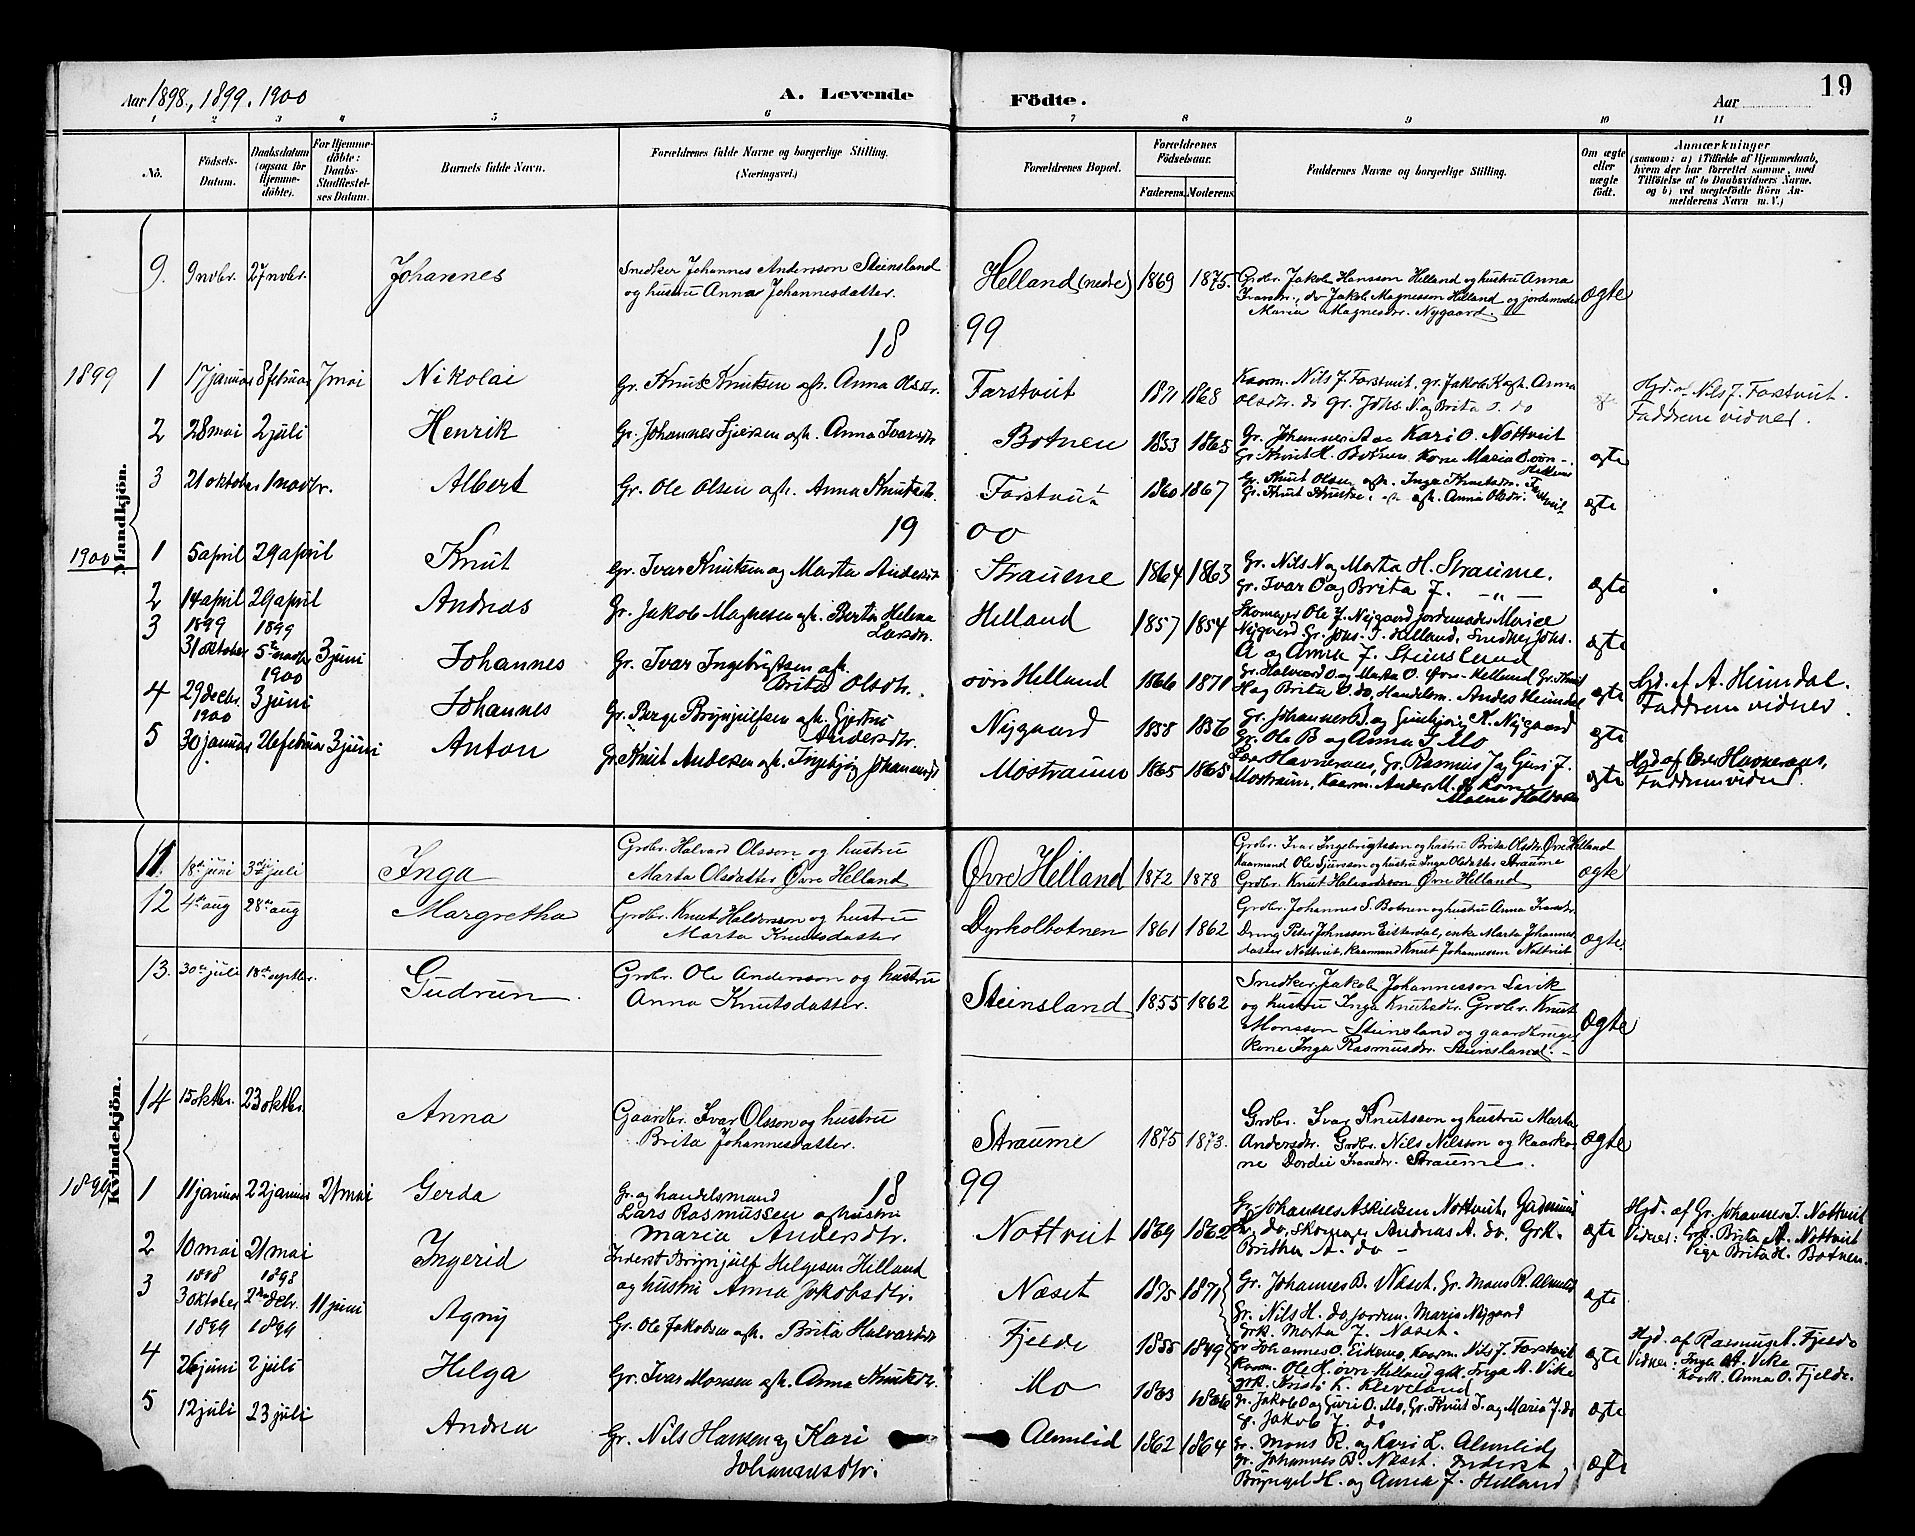 Aar 1898, 1899, 1900
A. Levende
Födte.
Aar
19
1 2 3 4 5 6 7 8 9 10 11
No.
Födsels-Datum.
Daabsdatum (ogsaa for Hjemmedöbte).
For Hjemmedöbte: Daabs-Stadfæstelses Datum.
Barnets fulde Navn.
Forældrenes fulde Navne og borgerlige Stilling. (Næringsvei.)
Forældrenes Bopæl.
Forældrenes Födselsaar.
Faderens. Moderens.
Faddernes Navne og borgerlige Stilling.
Om ægte eller uægte födt.
Anmærkninger (saasom: a) i Tilfælde af Hjemmedaab, hvem der har forrettet samme, med Tilföielse af to Daabsvidners Navne, og b) ved uægtefödte Börn Anmelderens Navn m. V.)
Mandkjön.
9. 9 novbr. 27 novbr. Johannes
Snedker Johannes Andersson Steinsland
og hustru Anna Johannesdatter.
Helland (nedre) 1869 1875.
Grdbr. Jakob Hansson Helland og hustru Anna
Ivarsdr., do Jakob Magnesson Helland og jordemoder
Maria Magnesdr. Nygaard.
ægte
18 99
1899 1 17 januar 8 februar 7 mai Nikolai
Gr. Knut Knutsen og h. Anna Olsdtr.
Farstveit 1871 1868
Kaarm. Nils J. Farstveit, gr. Jakob K og h. Anna
Olsdtr. do Gr. Johs. N. og Brita O. do
Hjd. af Nils J. Farstveit.
Faddrene vidner.
2 28 mai 2 juli Henrik
Gr. Johannes Sjursen og h. Anna Ivarsdtr
Botnen 1853 1865
Gr. Johannes A og Kari O. Nottveit
Gr. Knut H. Botnen, Kone Maria
ægte
3 21 oktober 1 novbr. Albert
Gr. Ole Olsen og h. Anna Knutsdtr.
Farstveit 1860 1867
Gr. Knut Olsen og h. Inga Knutsdtr.
og h. Anna Olsdtr.
ægte
19 00
1900 1 5 april 29 april Knut
Gr. Ivar Knutsen og Marta Andersdtr
Straume 1864 1863
Gr. Nils N og Marta H. Straume.
Gr. Ivar O og Brita J. - " -
ægte
2 14 april 29 april Andreas
Gr. Jakob Magnesen og h. Berta Helena
Larsdtr.
Helland 1857 1854
Skomager Ole J. Nygaard, jordemoder Marie
Nygaard, Gr. Johs. J. Helland, Snedker Johs.
A og Anna J. Steinsland
ægte
3 1899 31 oktober 1899 5te novbr 3 juni Johannes
Gr. Ivar Ingebrigtsen og h.
Brita Olsdtr.
øvre Helland 1866 1871
Gr. Halvard O. og Marta O. Øvre Helland, Gr. Knut
H og Brita O do, Handelsm. Anders Heimdal
ægte
Hjd. af A. Heimdal.
Faddrene vidner.
4 29 decbr. 1900 3 juni Johannes
Gr. Berge Brynjulfsen og h. Gjertru
Andersdtr.
Nygaard 1858 1856
Gr. Johannes B. og Gunbjørg K. Nygaard
Gr. Ole B og Anna I. Mo
ægte
5 1900 30 januar 26 februar 3 juni Anton
Gr. Knut Andersen og h. Ingebjørg Johannesdtr
Mostraum 1865 1865
Gr. Rasmus J og Guri J.
Mostraum, Kaarm. Anders M. og Kone
ægte
Faddrene vidner.
Kvindekjön.
11. 18de juni 3die juli Inga
Grdbr. Halvard Olsson og hustru
Marta Olsdatter Øvre Helland
Øvre Helland 1872 1878
Grdbr. Ivar Ingebrigtsson og hustru Brita Olsdtr. Øvre Helland
Kaarmand Ole Sjursson og hustru Inga Olsdatter Straume
Grdbr. Knut Halvardsson Øvre Helland
ægte
12 4de aug 28de aug Margretha
Grdbr. Knut Haldorsson og hustru
Marta Knutsdatter
Dyrkolbotnen 1861 1862
Grdbr. Johannes S. Botnen og hustru Anna Ivarsdtr.
Dreng Peter Johnsson Eitterdal, enke Marta Johannes-
datter Nottveit, Kaarmand Knut Johannessen Nottveit
ægte.
13. 30te juli 18de septbr. Gudrun
Grdbr. Ole Andersson og hustru
Anna Knutsdatter.
Steinsland 1855 1862
Snedker Jakob Johannesson Lavik
og hustru Inga Knutsdr. Grdbr. Knut
Monsson Steinsland og gaardbruger-
kone Inga Rasmusdr. Steinsland.
ægte
14 15 oktbr. 23 oktbr. Anna
Gaardbr. Ivar Olsson og hustru
Brita Johannesdatter.
Straume 1875 1873.
Grdbr. Ivar Knutsson og hustru Marta
Andersdr. Grdbr. Nils Nilsson og kaarko-
ne Dordei Ivarsdr. Straume.
ægte
18 99
1899 1 11 januar 22 januar 21 mai Gerda
Gr. og handelsmand
Lars Rasmussen og hustru
Maria Andersdtr.
Nottveit 1869 1862
Gr. Johannes Askildsen Nottveit,
do, Skomager Andreas A. do, Grk.
A. do
ægte
Hjd. af Gr. Johannes I. Nottveit
Vidner: Grk. Brita A. Nottveit
Pige Brita H. Botnen.
2 10 mai 21 mai Ingerid
Inderst Brynjulf Helgesen Helland
og hustru Anna Jakobsdtr.
Næset 1875 1871
Gr. Johannes B. Næset, Gr. Mons R. Almelid
Gr. Nils H. do, jordem. Maria Nygaard
Grk. Marta J. Næset.
ægte
3 1898 3 oktober 1898 2den decbr. 11 juni Agny
Gr. Ole Jakobsen og h. Brita Halvardsdtr
Fjelde 1855 1849
Gr. Johannes O. Eikemo, Kaarm. Nils J. Farstveit
Kaarm. Ole H. øvre Helland, grk. Inga A. Vike
grk. Kristi L. Kleveland
ægte
Hjd. af Rasmus A. Fjelde
Vidner: Inga A. Vike
Anna O. Fjelde.
4 1899 26 juni 1899 2 juli Helga
Gr. Ivar Monsen og h. Anna Knutsdtr.
Mo 1863 1866
Gr. Jakob O og Guri O. Mo, Gr. Knut I. og Maria J. do
Jakob J. do
ægte
5 12 juli 23 juli Andrea
Gr. Nils Hansen og Kari
Johannesdtr.
Almelid 1862 1864
Gr. Mons R. og Kari L. Almelid,
Gr. Johannes B. Næset. Inderst
H. og Anna J. Helland
ægte